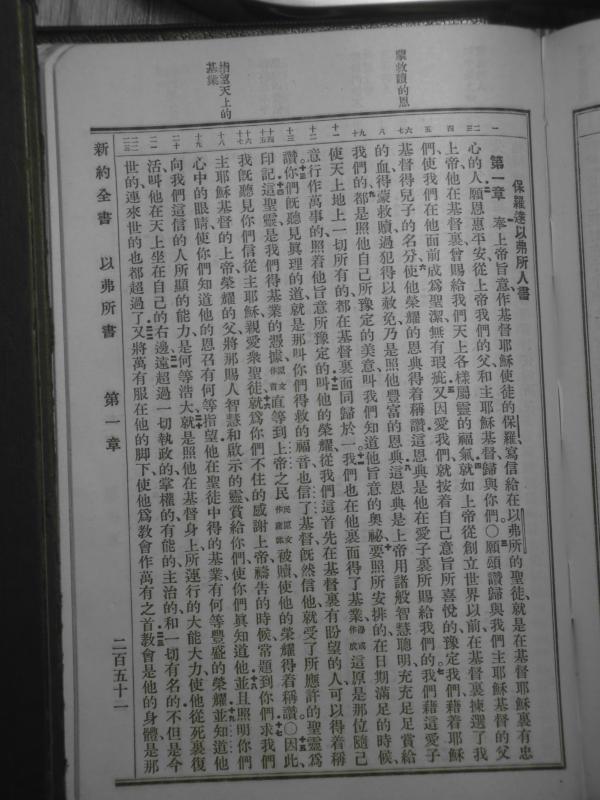 蒙救贖的恩
指望天上的
基業
保羅達以弗所人書
第一章 奉上帝旨意作基督耶穌使徒的保羅寫信給在以弗所的聖徒就是在基督耶穌裏有忠
心的人願恩惠平安從上帝我們的父和主耶穌基督歸與你們○願頌讚歸與我們主耶穌基督的父
上帝他在基督裏曾賜給我們天上各樣屬靈的福氣就如上帝從創立世界以前在基督裏揀選了我
們使我們在他面前成爲聖潔無有瑕疵又因愛我們就按着自己意旨所喜悅的豫定我們藉着耶穌
基督得兒子的名分使他榮耀的恩典得着稱讚這恩典是他在愛子裏所賜給我們的我們藉這愛子
的血得蒙救贖過犯得以赦免乃是照他豐富的恩典這恩典是上帝用諸般智慧聰明充充足足賞給
我們的都是照他自己所豫定的美意叫我們知道他旨意的奧祕要照所安排的在日期滿足的時候
使天上地上一切所有的都在基督裏面同歸於一我們也在他裏面得了基業得或作成這原是那位隨己
意行作萬事的照着他旨意所豫定的叫他的榮耀從我們這首先在基督裏有盼望的人可以得着稱
讚你們既聽見眞理的道就是那叫你們得救的福音也信了基督既然信他就受了所應許的聖靈爲
印記這聖靈是我們得基業的憑據原文作質直等到上帝之民民原文作產業被贖使他的榮耀得着稱讚○因此
我既聽見你們信從主耶穌親愛衆聖徒就爲你們不住的感謝上帝禱告的時候常題到你們求我們
主耶穌基督的上帝榮耀的父將那賜人智慧和啟示的靈賞給你們使你們眞知道他並且照明你們
心中的眼睛使你們知道他的恩召有何等指望他在聖徒中得的基業有何等豐盛的榮耀並知道他
向我們這信的人所顯的能力是何等浩大就是照他在基督身上所運行的大能大力使他從死裏復
活叫他在天上坐在自己的右邊遠超過一切執政的掌權的有能的主治的和一切有名的不但是今
世的連來世的也都超過了又將萬有服在他的脚下使他爲教會作萬有之首教會是他的身體是那
新約全書 以弗所書 第一章 二百五十一